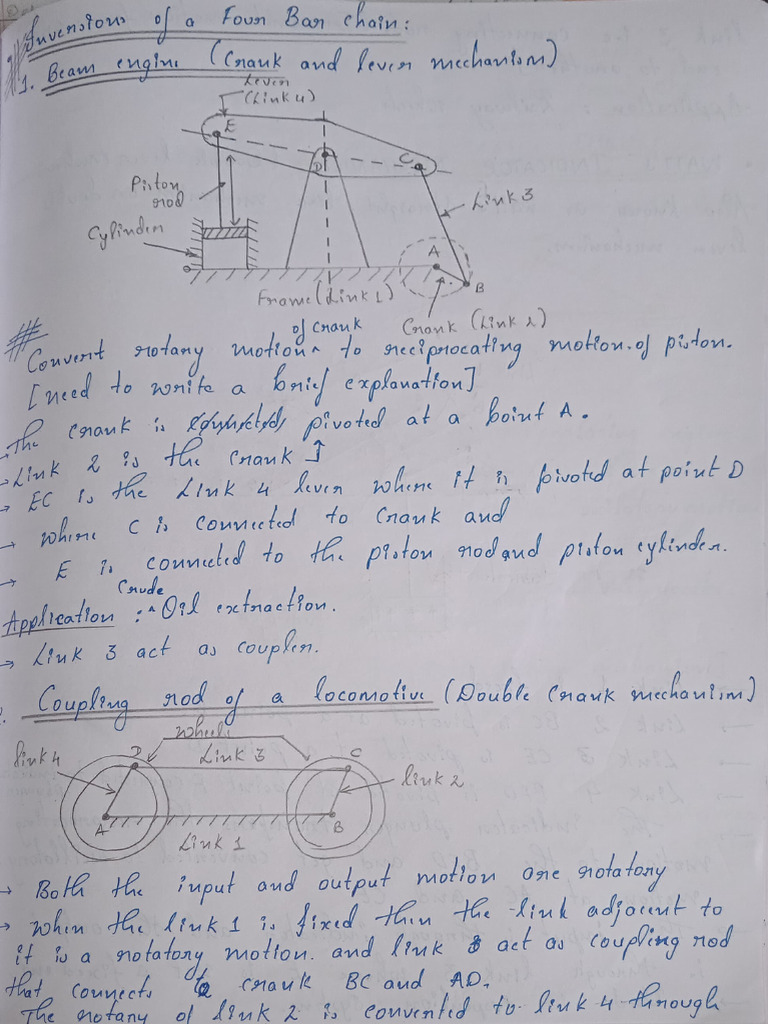 Inversions of a Four Bar chain:
1. Beam engine (Crank and lever mechanism)
Lever
(Link 4)
E
D
C
Piston
rod
Link 3
Cylinder
A
B
Frame (Link 1)
Crank (Link 2)
Convert rotary motion ^ of crank to reciprocating motion of piston.
[need to write a brief explanation]
→ The crank is pivoted at a point A.
→ Link 2 is the crank
→ EC is the Link 4 lever where it is pivoted at point D
→ where C is connected to crank and
→ E is connected to the piston rod and piston cylinder.
Application : ^ Crude Oil extraction.
→ Link 3 act as coupler.
2. Coupling rod of a locomotive (Double Crank mechanism)
wheels
link 4
D
Link 3
C
link 2
A
B
Link 1
→ Both the input and output motion are rotatory
→ when the link 1 is fixed then the link adjacent to
it is a rotatory motion. and link 3 act as coupling rod
that connects to crank BC and AD.
The rotary of link 2 is converted to link 4 through